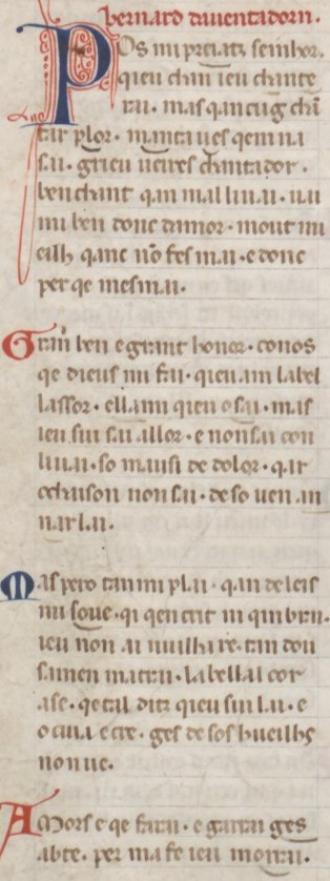 bernard dauentadorn.
Pos mi preiatz seinhor.
qieu chan ieu chante
rai. mas qan cug chā
tar plor. manta ues qem na
sai. greu ueires chantador.
ben chant qan mal li uai. uai
mi ben donc damor. mout mi
eilh qanc nō fes mai. e donc
per qe mesmai.
Gran ben e grant honor. conos
qe dieus mi fai. qieu am label
lassor. ellami qieu o sai. mas
ieu sui sai allor. e non sai con
li uai. so mausi de dolor. qar
ochaison non sai. de so uen an
nar lai.
Mas pero tan mi plai. qan de leis
mi soue. qi qen crit ni qin brai.
ieu non ai nuilh re. tan dou
samen matrai. la bella l cor
ase. qe tal ditz qieu sui lai. e
o cuia e cre. ges de sos hueilhs
non ue.
Amors e qe farai. e garrai ges
ab te. per ma fe ieu morrai.